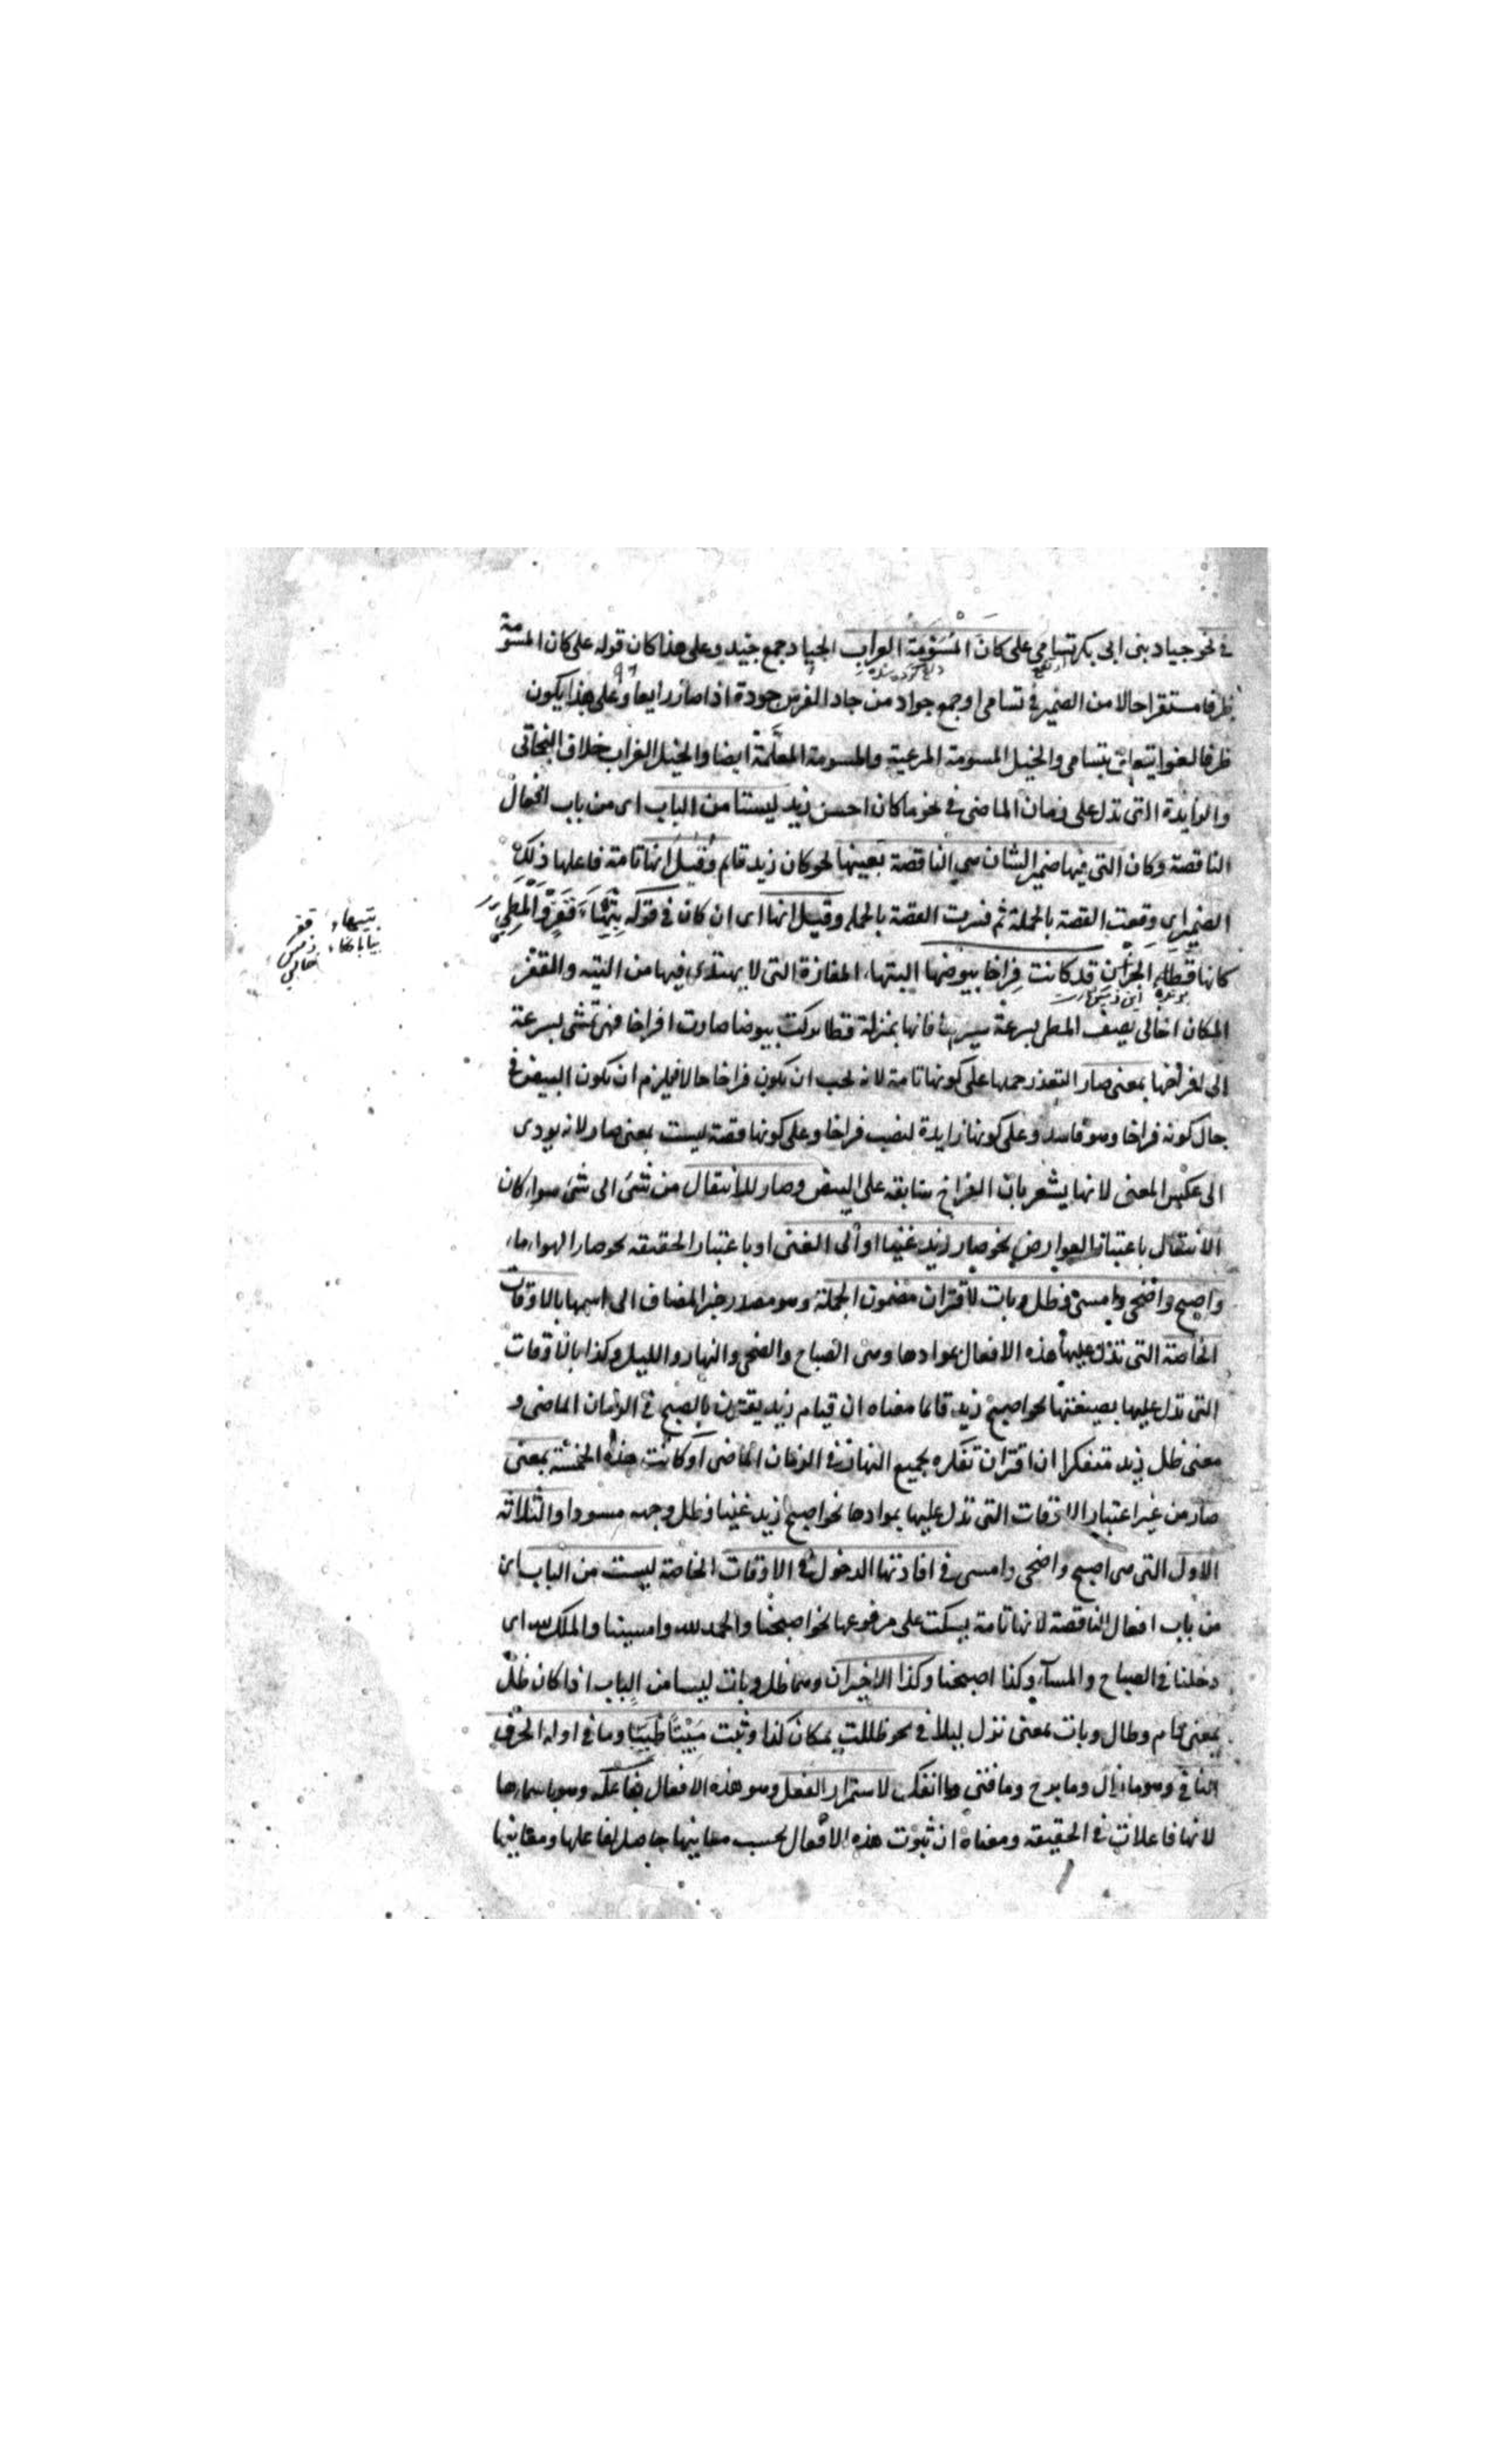 في نحو جياد بنى ابى بكر تسامى على كانَ المُسَوَّمَة العراب الجياد جمع جيد وعلى هذا كان قوله على كان المسومة
ظرفا مستقرا حالا من الضمير في تسامى او جمع جواد من جاد الفرس جودة اذا صار رايعا وعلى هذا يكون
ظرفا لغوا يتعلق بتسامى والخيل المسومة المرعية والمسومة المعلَّمة ايضا والخيل العراب خلاف البخاتى
والزايدة التى تدل على زمان الماضى في نحو ما كان احسن زيد ليستا من الباب اى من باب افعال
الناقصة وكان التى فيها ضمير الشان هي الناقصة بعينها نحو كان زيد قايم وقيل انها تامة فاعلها ذلك
الضمير اى وقعت القصة بالجملة ثم فسرت القصة بالجمله وقيل انها اى ان كان في قوله بتيهاء قفر والمطي
كانها قطا الحزن قد كانت فراخا بيوضها التيهاء المفازة التى لا يهتدى فيها من التيه والقفر
المكان الخالى يصف المطى بسرعة سيرها فانها بمنزلة قطا تركت بيوضا صارت افراخا فهى تمشى بسرعة
الى افراخها بمعنى صار لتعذر حملها على كونها تامة لانه يجب ان يكون فراخا حالا فيلزم ان يكون البيض في
حال كونه فراخا وهو فاسد وعلى كونها زايدة لنصب فراخا وعلى كونها ناقصة ليست بمعنى صار لانه يودى
الى عكس المعنى لانها يشعر بان الفراخ سابقه على البيض وصار للانتقال من شئ الى شئ سواء كان
الانتقال باعتبار العوارض نحو صار زيد غنيا او الى الغنى او باعتبار الحقيقه نحو صار الهواء ماء
واصبح واضحى وامسى وظل وبات لاقتران مضمون الجملة وهو مصدر خبر المضاف الى اسمها بالاوقات
الخاصة التى تدل عليها هذه الافعال بموادها وهى الصباح والضحى والنهار والليل وكذا بالاوقات
التى تدل عليها بصيغتها نحو اصبح زيد قائما معناه ان قيام زيد يقترن بالصبح في الزمان الماضى و
معنى ظل زيد متفكرا ان اقتران تفكره بجميع النهار في الزمان الماضى او كانت هذه الخمسة بمعنى
صار من غير اعتبار الاوقات التى تدل عليها بموادها نحو اصبح زيد غنيا وظل وجهه مسودا والثلاثه
الاول التى هى اصبح واضحى وامسى في افادتها الدخول في الاوقات الخاصة ليست من الباب اى
من باب افعال الناقصة لانها تامة يسكت على مرفوعها نحو اصبحنا والحمد لله وامسينا والملك لله اى
دخلنا في الصباح والمسآء وكذا اصبحنا وكذا الاخيران وهما ظل وبات ليسا من الباب اذا كان ظل
بمعنى دام وطال وبات بمعنى نزل ليلا في نحو ظللت بمكان كذا وبت مَبِيْتًا طَيِّبًا وما في اوله الحرف
النافى وهو ما زال وما برح وما فتى وما انفك لاستمرار الفعل وهو هذه الافعال بفاعله وهو باسمارها
لانها فاعلات في الحقيقه ومعناه ان ثبوت هذه الافعال بحسب معانيها حاصل لفاعلها ومعانيها
بتيهاء قفر
خالي